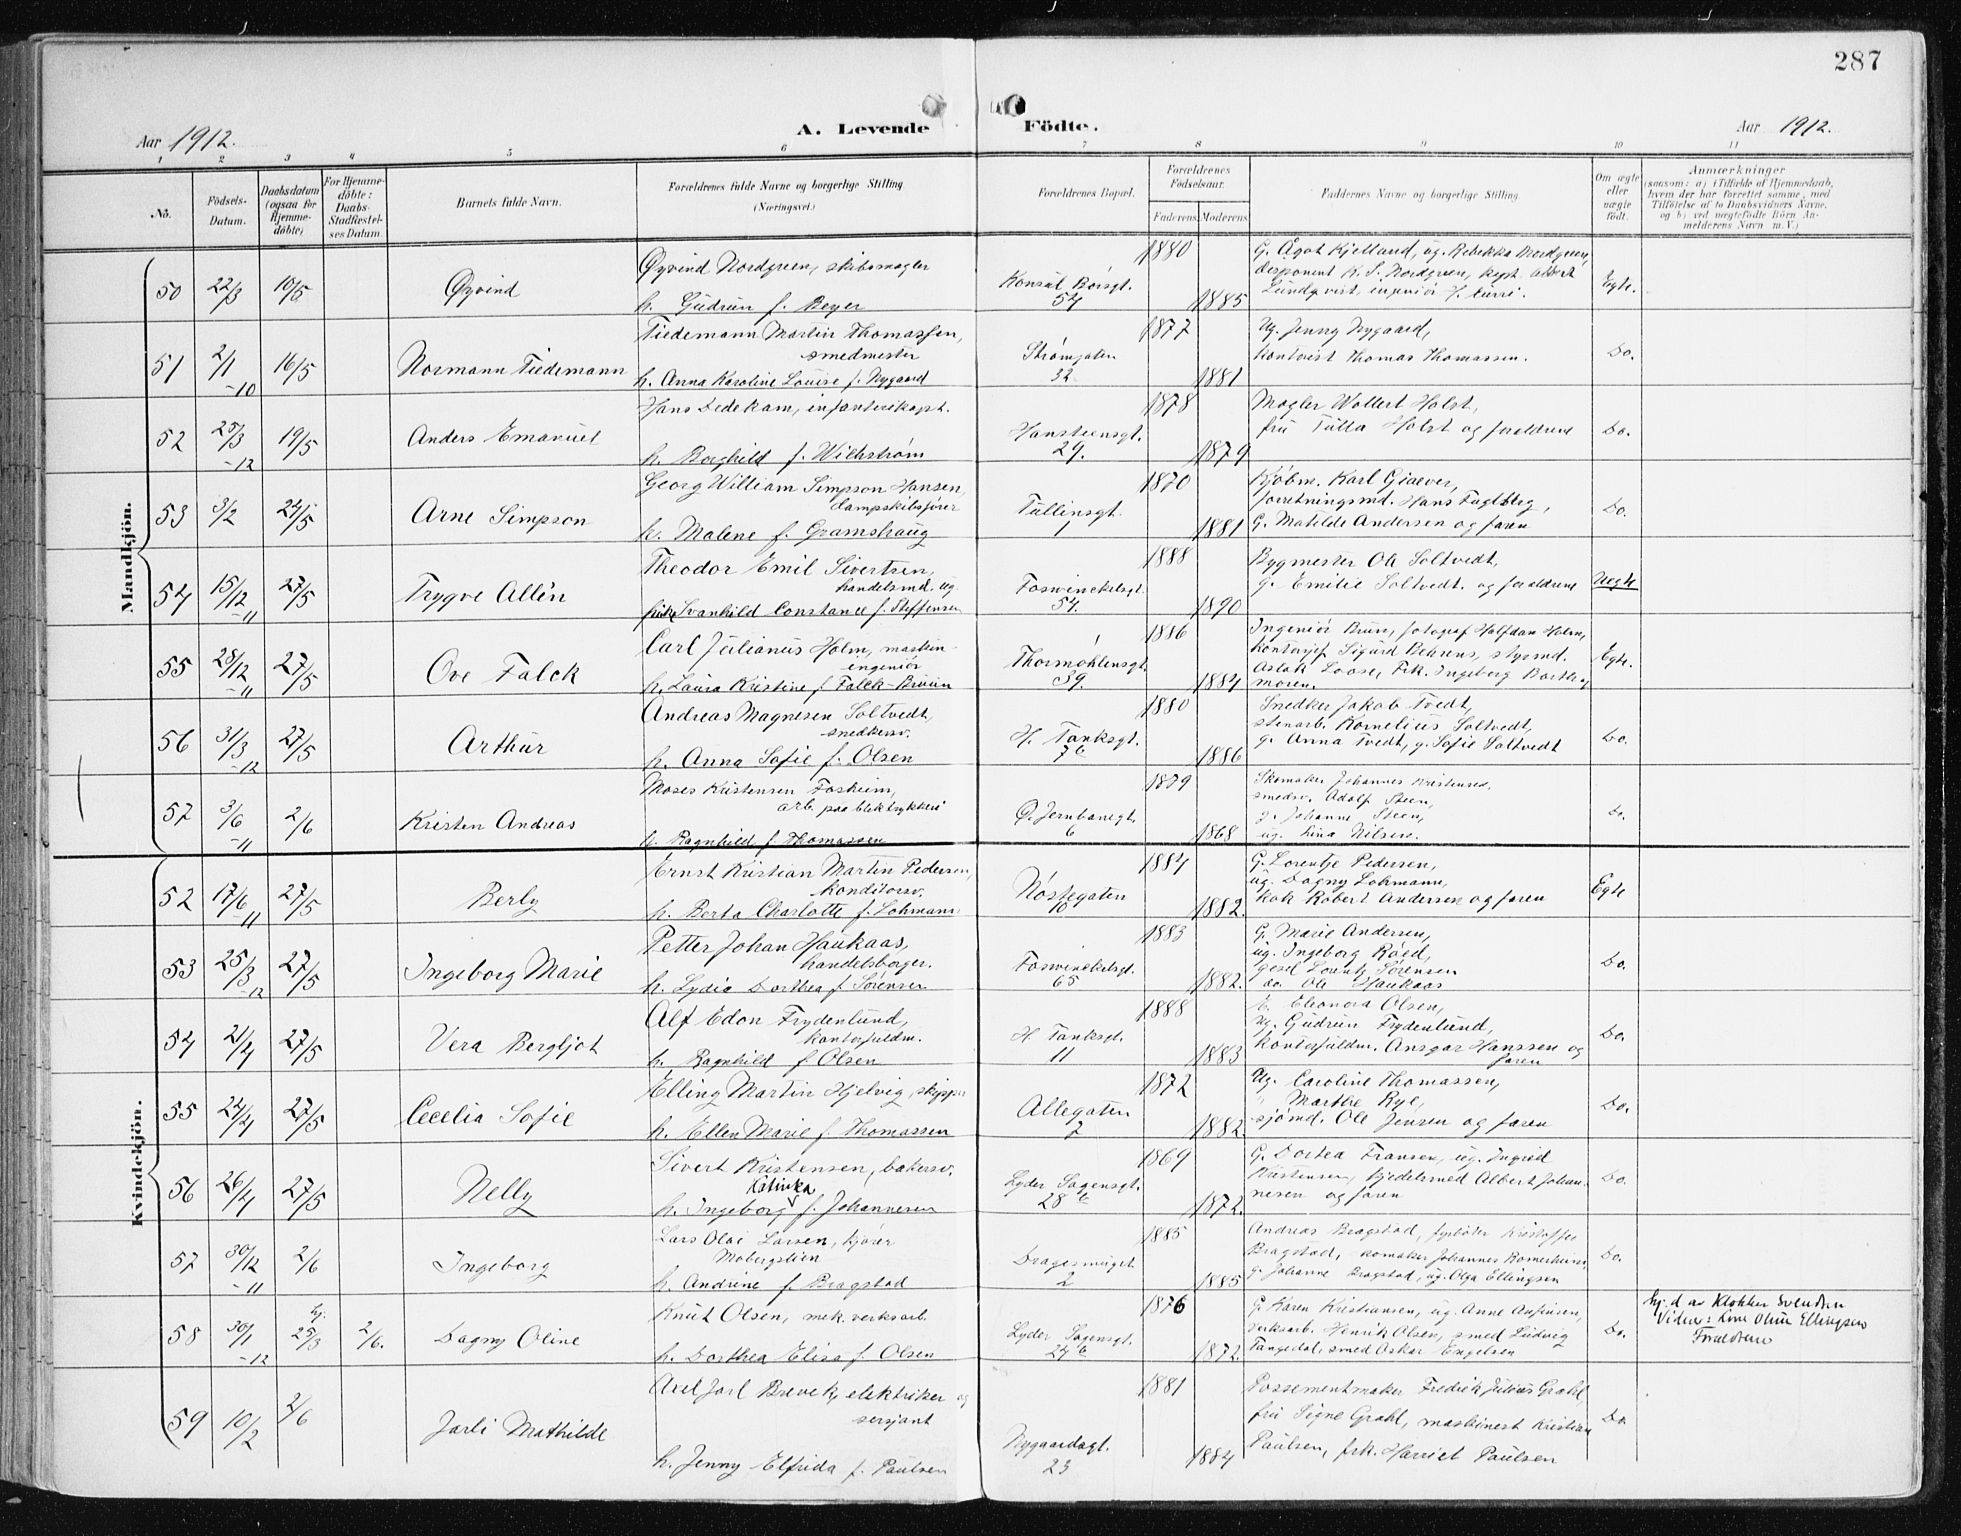 287
Aar 1912.
A. Levende Födte.
Aar 1912.
1 2 3 4 5 6 7 8 9 10 11
No.
Födsels-Datum.
Daabsdatum (ogsaa for Hjemme-döbte)
For Hjemme-döbte: Daabs-Stadfestel-ses Datum
Barnets fulde Navn.
Forældrenes fulde Navne og borgerlige Stilling (Næringsvei.)
Forældrenes Bopæl.
Forældrenes Födselsaar.
Faderens Moderens
Faddernes Navne og borgerlige Stilling.
Om ægte eller uægte födt.
Anmærkninger
(saasom: a) i Tilfælde af Hjemmedaab,
hvem der har forrettet samme, med
Tilföielse af to Daabsvidners Navne.
og b) ved uægtefödte Börn An-
melderens Navn m.V.)
Mandkjön.
50 22/3 10/5 Øyvind
Øyvind Nordgreen, skibsmægler
h. Gudrun f. Beyer
Konsul Børsgt. 54
1880 1885
G. Ågot Kjelland, ug. Rebekka Nordgreen,
desponent K. S. Nordgreen, kapt. Albert
Lundqvist, ingeniør H.
Egte.
51 2/1 -10 16/5 Normann Tiedemann
Tiedemann Martin Thomassen,
smedmester
h. Anna Karoline Louise f. Nygaard
Strømgaten 32
1877 1881
Ug. Jenny Nygaard,
kontorist Thomas Thomassen.
Do.
52 25/3 -12 19/5 Anders Emanuel
Hans Dedekam, infanterikapt.
h. Borghild f. Wickstrøm
Hansteensgt. 29.
1878 1879
Mægler Wollert Holst,
fru Tulla Holst og forældrene
Do.
53 3/2 24/5 Arne Simpson
Georg William Simpson Hansen,
dampskibsfører
h. Malene f. Gramshaug
Tullinsgt. 1
1870 1881
Kjøbm. Karl Giæver,
forretningsmd. Hans Fuglberg,
G. Matilde Andersen og faren
Do.
54 15/12 -11 27/5 Trygve Allén
Theodor Emil Sivertsen,
handelsmd. ug.
pike Svanhild Constance f. Steffensen
Fosvinckelsgt. 54.
1888 1890
Bygmester Ole Soltvedt,
g. Emilie Soltvedt og forældrene
Uegte
55 28/12 -11 27/5 Ove Falck
Carl Julianus Holm, maskin-
engeniør
h. Laura Kristine f. Falck-Bruun
Thormøhlensgt. 39.
1886 1884
Ingeniør Brun, fotograf Halfdan Holm,
kontorsjef Sigurd Behrens, styrmd.
Aslak Loose, Frk. Ingeborg Barth og
moren.
Egte.
56 31/3 -12 27/5 Arthur
Andreas Magnesen Soltvedt,
snedkersv.
h. Anna Sofie f. Olsen
H. Tanksgt. 7b
1880 1886
Snedker Jakob Tvedt,
stenarb. Kornelius Soltvedt,
g. Anna Tvedt, g. Sofie Soltvedt
Do.
57 3/6 -11 2/6 Kristen Andreas
Moses Kristensen Fosheim,
arb. paa bliktrykkeri
h. Ragnhild f. Thomassen
Ø. Jernbanegt. 6
1879 1868
Skomaker Johannes Kristensen,
smedsv. Adolf Steen,
g. Johanne Steen,
ug. Lina Nilsen.
Do.
Kvindekjön.
52 17/6 -11 27/5 Berly
Ernst Kristian Martin Pedersen,
konditorsv.
h. Berta Charlotte f. Lohmann
Nøstegaten 10
1884 1882.
G. Lorentje Pedersen,
ug. Dagny Lohmann,
kok Robert Andersen og faren
Egte
53 25/3 -12 27/5 Ingeborg Marie
Petter Johan Haukaas,
handelsborger.
h. Lydia Dorthea f. Sørensen
Fosvinckelsgt. 65
1883 1882.
G. Marie Andersen,
ug. Ingeborg Røed,
gesel Lorentz Sørensen
do. Ole Haukaas
Do.
54 21/4 27/5 Vera Bergljot
Alf Edon Frydenlund,
kontorfuldm.
h. Ragnhild f. Olsen
H. Tanksgt. 11
1888 1883
E. Eleonora Olsen,
ug. Gudrun Frydenlund,
kontorfuldm. Ansgar Hanssen og
faren
Do.
55 24/4 27/5 Cecelia Sofie
Elling Martin Hjelvig, skipper
h. Ellen Marie f. Thomassen
Allegaten 7
1872 1882.
Ug. Caroline Thomassen,
" Marthe Rye,
sjømd. Ole Jensen og faren
Do.
56 26/4 27/5 Nelly
Sivert Kristensen, bakersv.
Katinka
h. Ingeborg f. Johannesen
Lyder Sagensgt. 28b
1869 1872.
G. Dortea Fransen, ug. Ingrid
Kristensen, kjedelsmed Albert Johan-
nesen og faren
Do.
57 30/12 -11 2/6 Ingeborg
Lars Olai Larsen, kjører
Møbergslien
h. Andrine f. Bragstad
Dragesmuget 2
1885 1885
Andreas Bragstad, fyrbøter Kristoffer
Bragstad, skomaker Johannes Romerheim,
g. Johanne Bragstad, ug. Olga Ellingsen
Do.
58 30/1 -12 hj. 25/3 2/6. Dagny Oline
Knut Olsen, mek. verksarb.
h. Dorthea Elisa f. Olsen
Lyder Sagensgt. 24b
1876 1872.
G. Karen Kristiansen, ug. Anne
verksarb. Henrik Olsen, smed Ludvig
Tangedal, smed Oskar Engelsen
Do.
hj. d. av Klokker Svendsen
Vidner: Line Oline Ellingsen
Forældrene
59 10/2 2/6 Jarli Mathilde
Axel Jarl Brevek, elektriker og
sersjant
h. Jenny Elfrida f. Paulsen
Nygaardsgt. 23
1881 1884
Possementmaker Fredrik Julius Grahl,
fru Signe Grahl, maskinest Kristian
Paulsen, frk. Harriet Paulsen
Do.